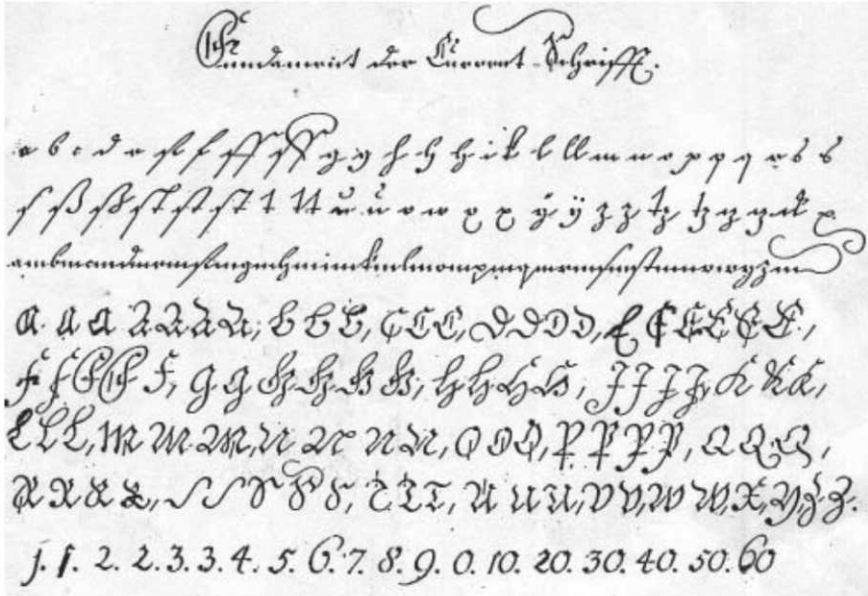 Fundament der Current-Schrifft.
a b c d e f f ff ff g g h h h i k l ll m n o p p q r s s
s ß ß st st st t tt u u v w x x ÿ ÿ z z tz tz z z ck x
ambmcmdmemfmgmhmimkmlmompmqmrmsmstmumvwyzm
A. A A A A A A, B B B, C C C, D D D D, E E E E E E.,
F F F F F, G G G G G G, H H H H, J J J J, K K K,
L L L, M M M, N N N N, O O O, P P P P, Q Q Q,
R R R R, S S S S S, T T T, U U U, V V, W W, X, Y, Z. Z.
1. 1. 2. 2. 3. 3. 4. 5. 6. 7. 8. 9. 0. 10. 20. 30. 40. 50. 60